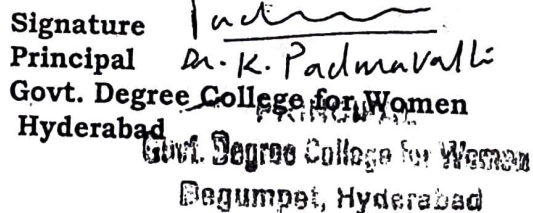 Signature Padma
Principal Dr. K. Padmavalli
Govt. Degree College for Women
PRINCIPAL
Hyderabad
Govt. Degree College for Women
Begumpet, Hyderabad